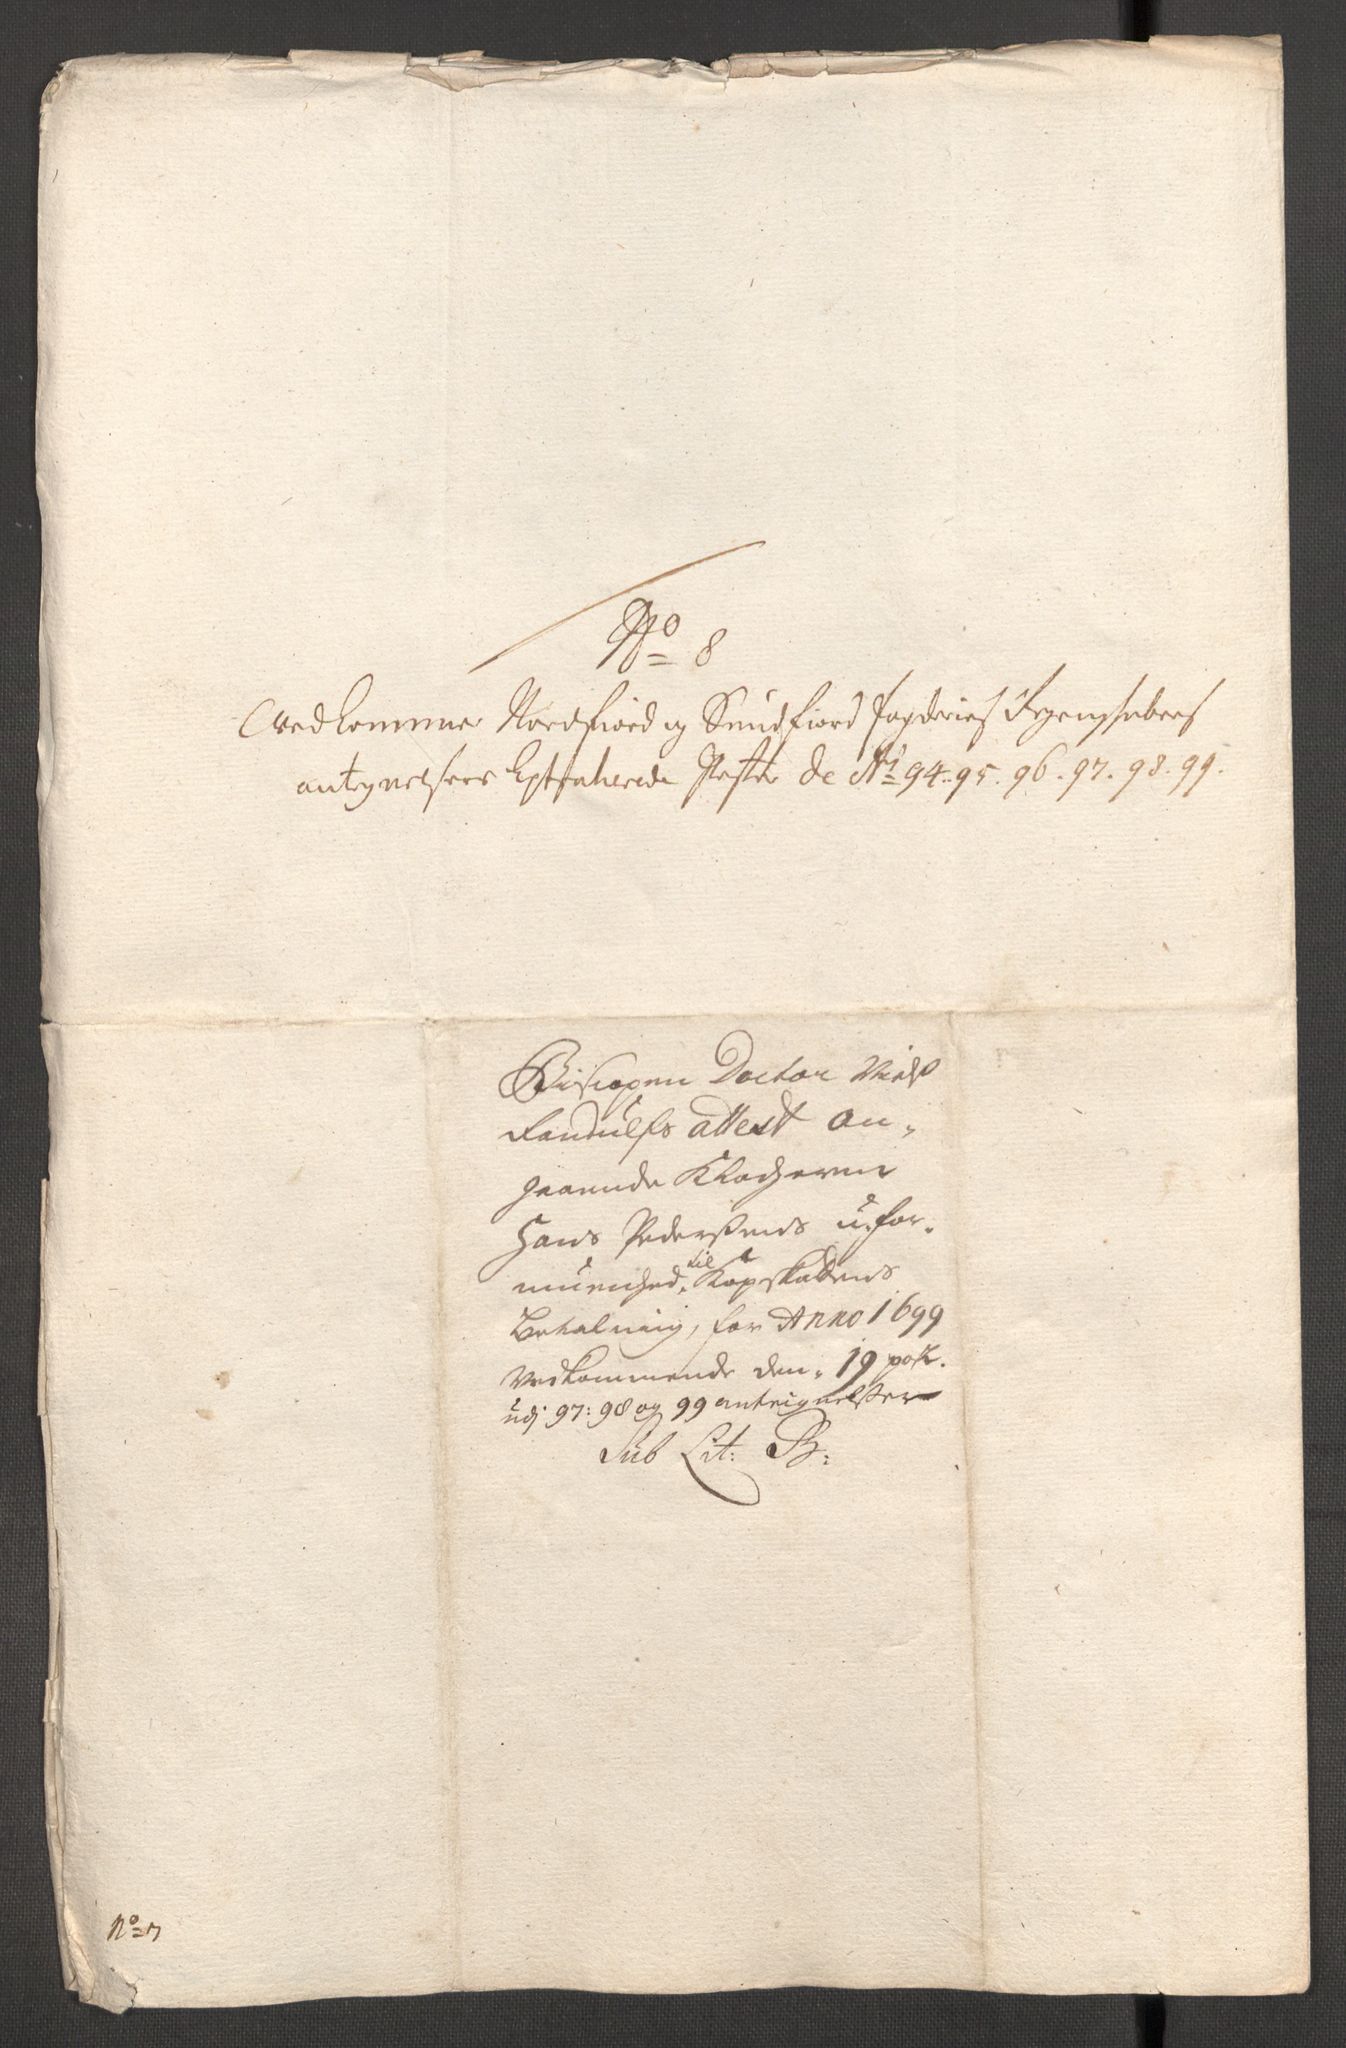 No 8
Vedkommer Nordfiord og Sundfiord fogderies Regenschabers
antegnelsers Extraherede Poster de Ao 94. 95. 96. 97. 98. 99.
Biscopen Doctor Niels
Randulfs attest an-
gaaende Klocheren
Hans Pedersens ufor-
muenhed til Kopskattens
Betalning, for Anno 1699
Vedkommende den 19 post.
udj 97: 98 og 99 anteignelser
Sub Lit: B:
No 7